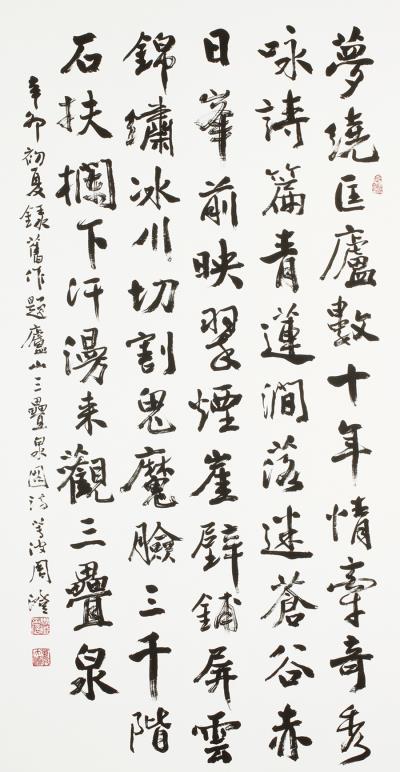 夢繞匡廬數十年情牽奇秀
咏詩篇青蓮澗落迷蒼谷赤
日峯前映翠煙崖壁鋪屏雲
錦繡冰川切割鬼魔臉三千階
石扶欄下汗漫来觀三疊泉
辛卯初夏錄舊作題廬山三疊泉圖詩蓴波周澄